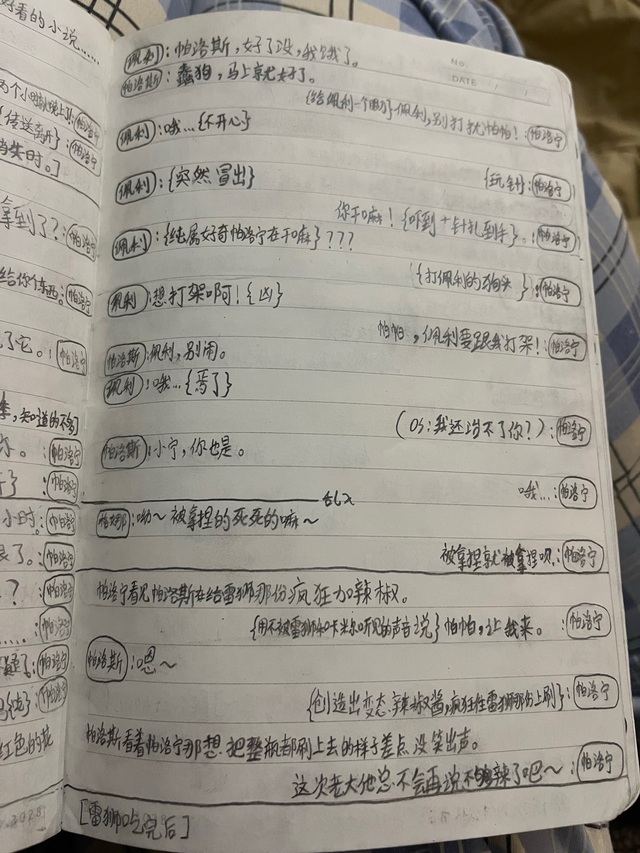 好看的小说……
两个小时候晚上]:帕洛宁
{传送到}:帕洛宁
当失时。]
拿到了?:帕洛宁
给你个东西。:帕洛宁
了它。:帕洛宁
知道的不多]
尔。:帕洛宁
:帕洛宁
小时。:帕洛宁
了。:帕洛宁
?:帕洛宁
……:帕洛宁
:帕洛宁
:帕洛宁
红色的花
NO.
DATE / /
佩利:帕洛斯,好了没,我饿了。
帕洛斯:蠢狗,马上就好了。
{给佩利一个}佩利,别打扰帕帕!:帕洛宁
佩利:哦…{不开心}
佩利:{突然冒出}
{玩针}:帕洛宁
你干嘛!{吓到+针扎到手}:帕洛宁
佩利:{纯属好奇帕洛宁在干嘛}???
{打佩利的狗头}:帕洛宁
佩利:想打架啊!{凶}
帕帕,佩利要跟我打架!:帕洛宁
帕洛斯:佩利,别闹。
佩利:哦…{焉了}
(OS:我还治不了你?):帕洛宁
帕洛斯:小宁,你也是。
哦…:帕洛宁
乱入
帕娜:呦~被拿捏的死死的嘛~
被拿捏就被拿捏呗:帕洛宁
帕洛宁看见帕洛斯在给雷狮那份疯狂加辣椒。
{用不被雷狮和卡米尔听见的声音说}帕帕,让我来。:帕洛宁
帕洛斯:嗯~
{创造出变态辣椒酱,疯狂往雷狮那份上刷}:帕洛宁
帕洛斯看着帕洛宁那想把整瓶都刷上去的样子差点没笑出声。
这次老大他总不会再说不够辣了吧~:帕洛宁
[雷狮吃完后]